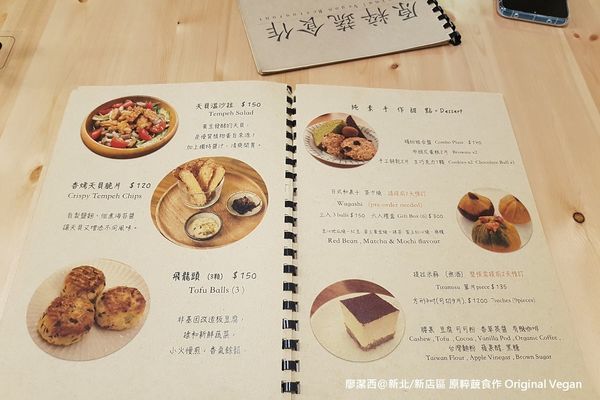 原粹蔬食作
天貝溫沙拉 $150
Tempeh Salad
黃豆發酵的天貝，
是優質植物蛋白來源！
加上獨特醬汁，清爽開胃。
香烤天貝脆片 $120
Crispy Tempeh Chips
自製鹽麴、佃煮海苔醬
讓天貝又增添不同風味。
飛龍頭 (3顆) $150
Tofu Balls (3)
非基因改造板豆腐，
揉和新鮮蔬菜，
小火慢煎，香氣餘韻。
純素手作甜點 · Dessert
繽紛組合盤 Combo Plate $195
Brownie x2
Cookies x2 Chocolate Ball x1
日式和菓子 茶巾燒 請提前2天預訂
Wagashi (pre-order needed)
三入 3 balls $150 六入禮盒 Gift Box (6) $300
Red Bean , Matcha & Mochi flavour
提拉米蘇 (無酒) 整模需提前2天預訂
Tiramisu 單片 piece $135
方形6吋(可切9片). $1200 /7inches (9pieces)
腰果 豆腐 可可粉 香草莢醬 有機咖啡
Cashew , Tofu , Cocoa , Vanilla Pod , Organic Coffee ,
台灣麵粉 蘋果醋 黑糖
Taiwan Flour , Apple Vinegar , Brown Sugar
廖潔西@新北/新店區 原粹蔬食作 Original Vegan